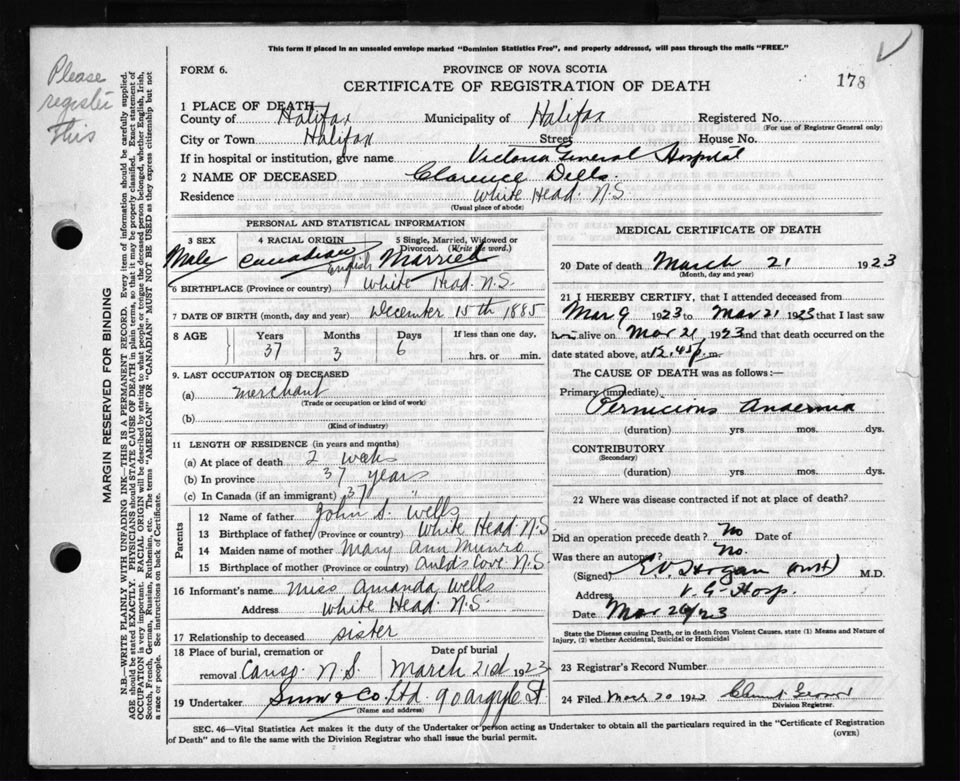 This form if placed in an unsealed envelope marked "Dominion Statistics Free", and properly addressed, will pass through the mails "FREE."
Please register this
FORM 6.
PROVINCE OF NOVA SCOTIA
178
CERTIFICATE OF REGISTRATION OF DEATH
1 PLACE OF DEATH
County of Halifax Municipality of Halifax Registered No.
(For use of Registrar General only)
City or Town Halifax Street House No.
If in hospital or institution, give name Victoria General Hospital
2 NAME OF DECEASED Clarence Wells.
Residence White Head. N.S.
(Usual place of abode)
PERSONAL AND STATISTICAL INFORMATION
3 SEX 4 RACIAL ORIGIN 5 Single, Married, Widowed or Divorced. (Write the word.)
Male Canadian English Married
6 BIRTHPLACE (Province or country) White Head N.S.
7 DATE OF BIRTH (month, day and year) December 15th 1885
8 AGE Years Months Days If less than one day,
37 3 6 hrs. or min.
9. LAST OCCUPATION OF DECEASED
(a) merchant
(Trade or occupation or kind of work)
(b)
(Kind of industry)
11 LENGTH OF RESIDENCE (in years and months)
(a) At place of death 2 weeks
(b) In province 37 years
(c) In Canada (if an immigrant) 37 "
Parents
12 Name of father John S. Wells
13 Birthplace of father (Province or country) White Head N.S
14 Maiden name of mother Mary Ann Munro
15 Birthplace of mother (Province or country) Aulds Cove. N.S.
16 Informant's name Miss Amanda Wells
Address White Head. N.S.
17 Relationship to deceased sister
18 Place of burial, cremation or removal Canso. N.S. Date of burial March 21st 1923
19 Undertaker Snow & Co. Ltd. 90 Argyle St.
(Name and address)
MEDICAL CERTIFICATE OF DEATH
20 Date of death March 21 1923
(Month, day and year)
21 I HEREBY CERTIFY, that I attended deceased from
Mar 9 1923 to Mar 21 1923 that I last saw
him alive on Mar 21 1923 and that death occurred on
date stated above, at 12.45 p.m.
The CAUSE OF DEATH was as follows:—
Primary (immediate)
Pernicious Anaemia
(duration) yrs. mos. dys.
CONTRIBUTORY
(Secondary)
(duration) yrs. mos. dys.
22 Where was disease contracted if not at place of death?
Did an operation precede death? No Date of
Was there an autopsy? No.
(Signed) E.V. Hogan M.D.
Address V. G. Hosp.
Date Mar 26/23
State the Disease causing Death, or in death from Violent Causes, state (1) Means and Nature of
Injury, (2) whether Accidental, Suicidal or Homicidal
23 Registrar's Record Number
24 Filed Mar 20 192
Division Registrar.
SEC. 46—Vital Statistics Act makes it the duty of the Undertaker or person acting as Undertaker to obtain all the particulars required in the "Certificate of Registration
of Death" and to file the same with the Division Registrar who shall issue the burial permit.
(OVER)
MARGIN RESERVED FOR BINDING
N.B—WRITE PLAINLY WITH UNFADING INK—THIS IS A PERMANENT RECORD. Every item of information should be carefully supplied.
AGE should be stated EXACTLY. PHYSICIANS should STATE CAUSE OF DEATH in plain terms, so that it may be properly classified. Exact statement of
OCCUPATION is very important. RACIAL ORIGIN will be described by stating to what people or tongue the deceased person belonged, whether English, Irish,
Scotch, French, German, Russian, Ruthenian, etc. The terms "AMERICAN" OR "CANADIAN" MUST NOT BE USED as they express citizenship but not
a race or people. See instructions on back of Certificate.